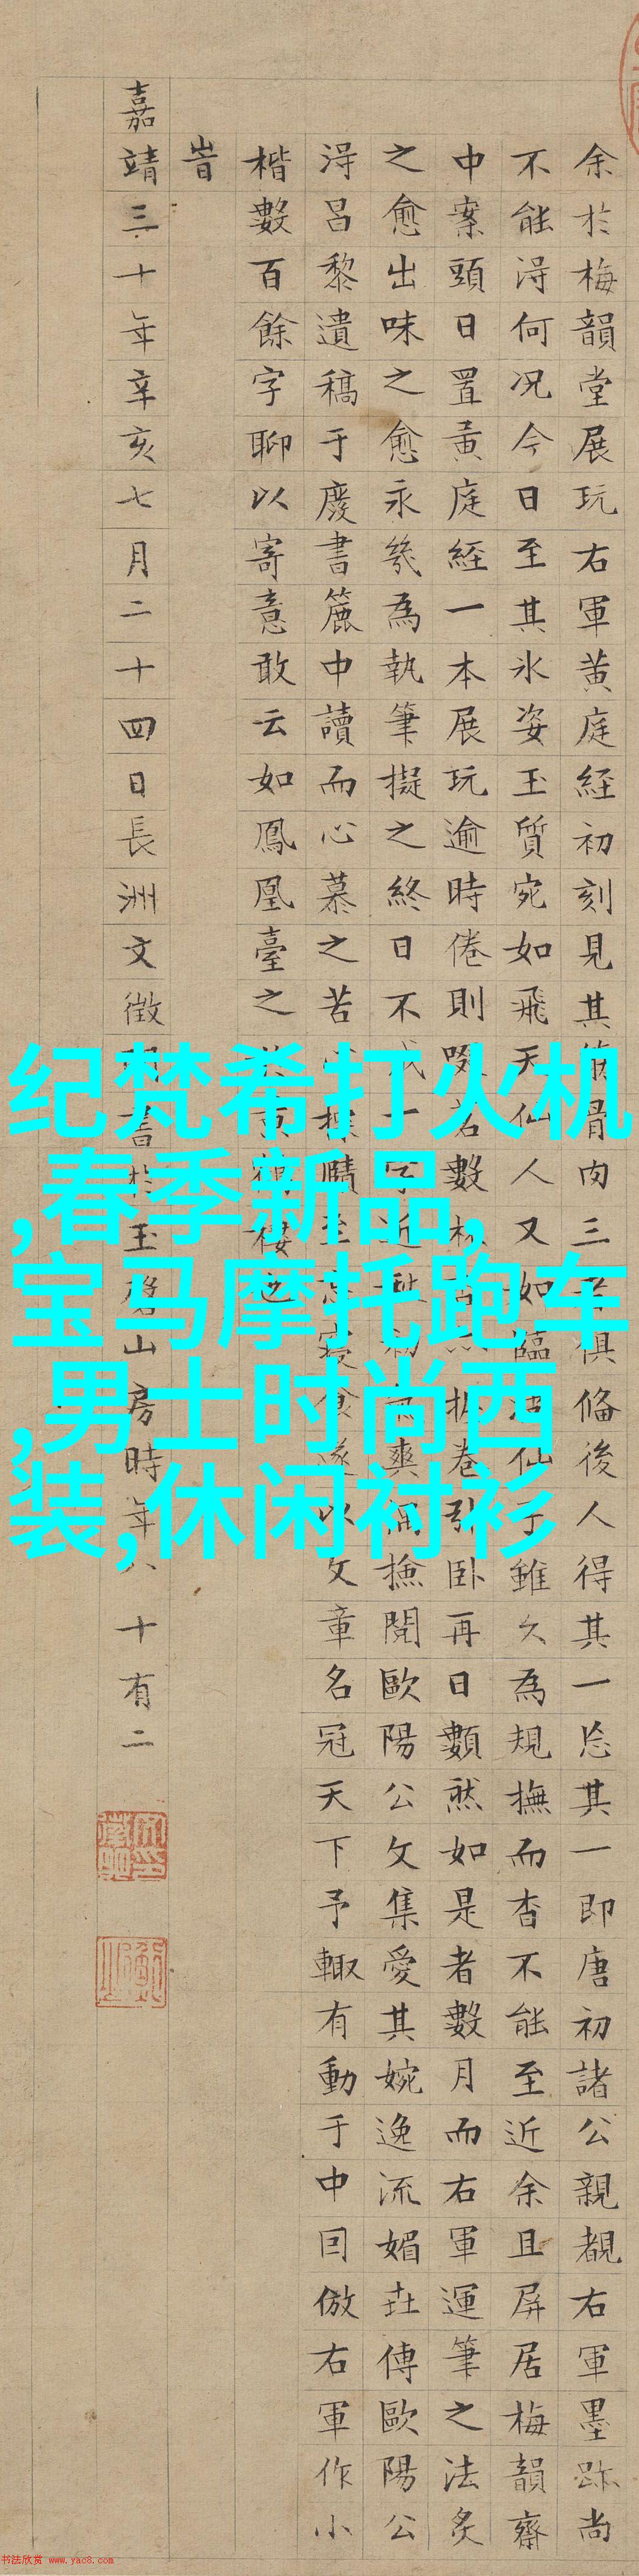 余於梅韻堂展玩右軍黄庭経初刻見其骨肉三俱俻後人得其一忘其一即唐初諸公親覩右軍墨跡尚
不能淂何况今日至其氷姿玉質宛如飛天仙人又如臨仙子雖久為規撫而杳不能至近余且屏居梅韻齋
中案頭日置黄庭経一本展玩逾時倦則啜茗數卷引卧再日數然如是者數月而右軍運筆之法炙
之愈出味之愈永㡬為執筆擬之終日不成一字近初爽偶撿閲歐陽公文集愛其婉逸流媚世傳歐陽公
淂昌黎遺稿于廢書簏中讀而心慕之苦探賾至忘寝食遂以文章名冠天下予輙有動于中囙倣右軍作小
楷數百餘字聊以寄意敢云如鳳凰臺之鶴樓也
旹
嘉靖三十年辛亥七月二十四日長洲文徵明書於玉磬山房時年八十有二
纪梵希打火机
,春季新品,
宝马摩托跑车
,男士时尚西
装,休闲衬衫
书法欣赏 www.yac8.com